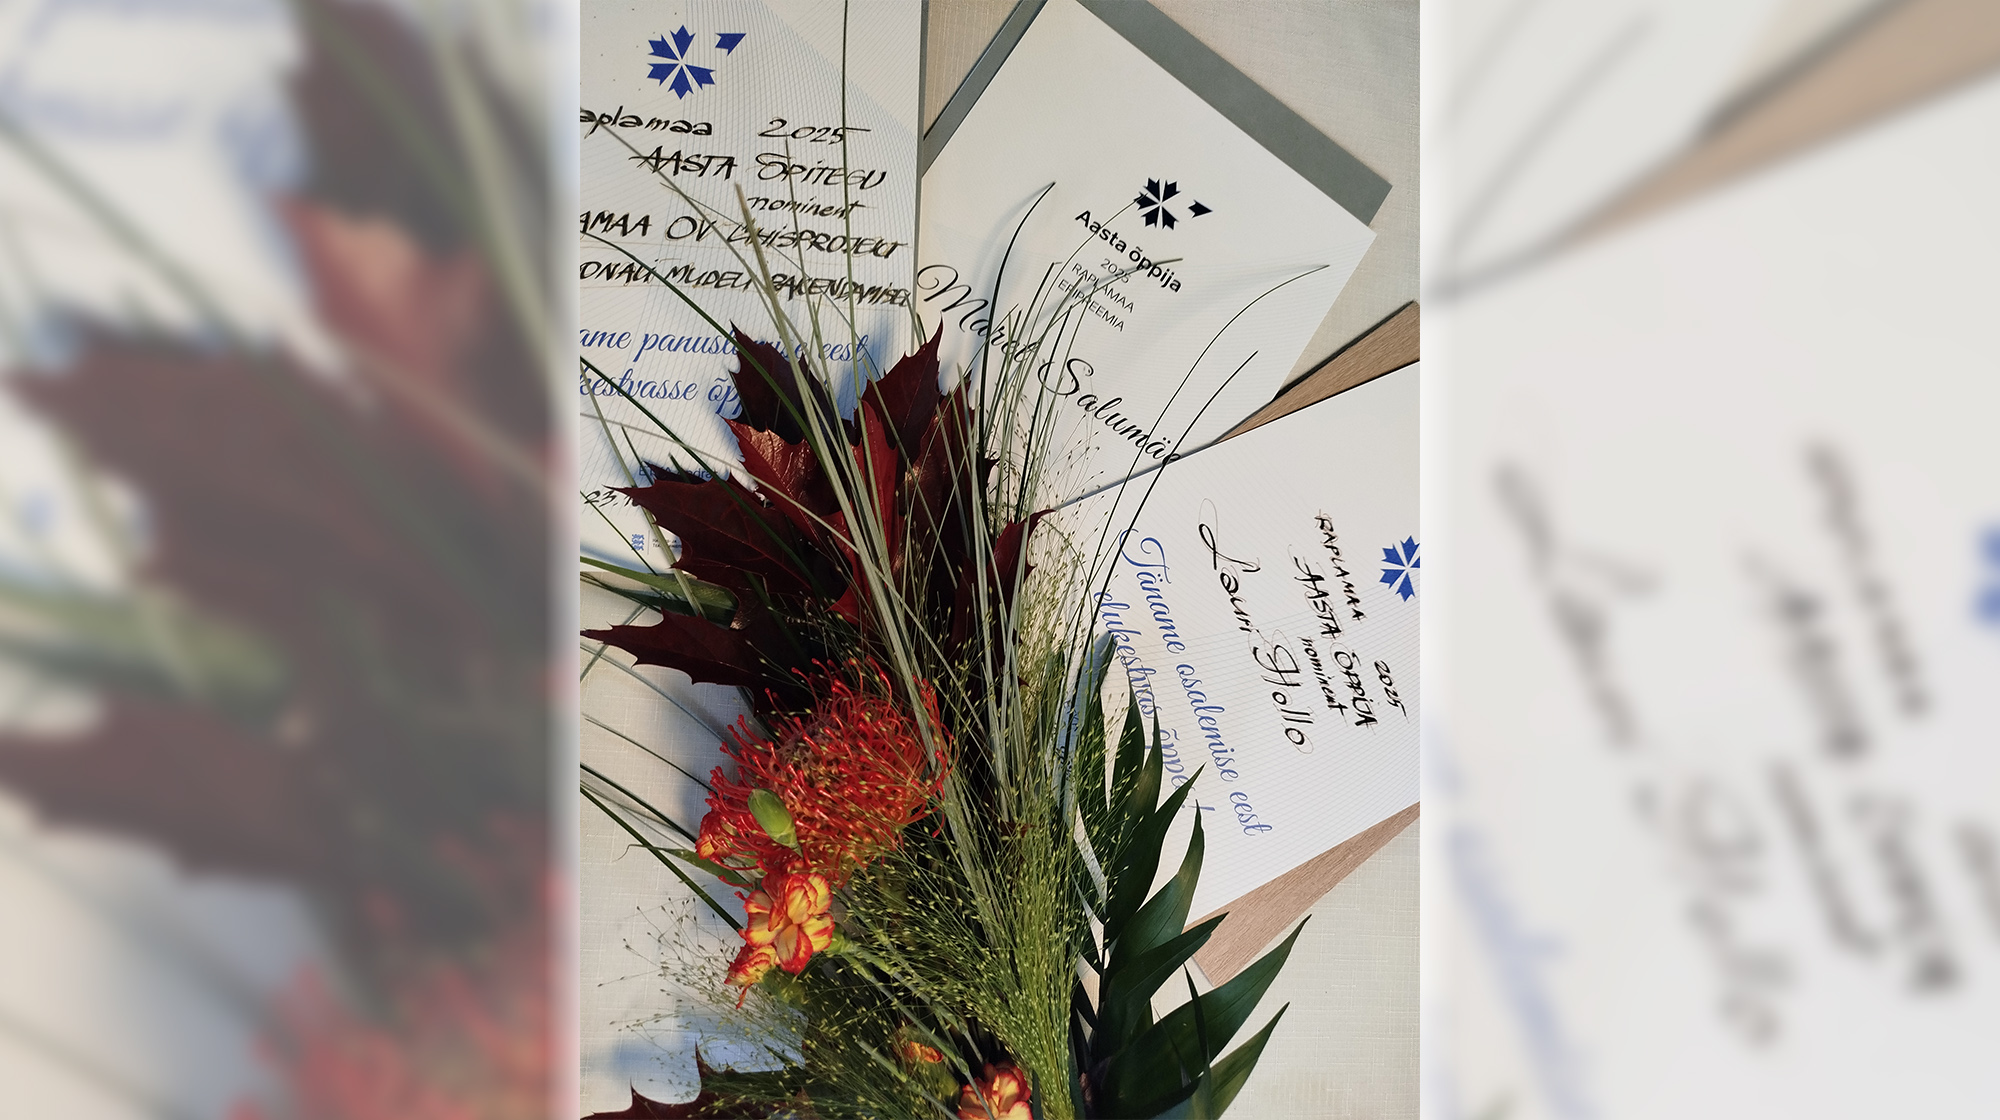 aplamaa 2025
AASTA ÕPITEGU
nominent
AMAA OV ÜHISPROJEKT
ONALI MUDELI RAKENDAMISEL
ame panustamise eest
kestvasse
23.
Aasta õppija
2025
RAPLAMAA
ERIPREEMIA
Marel Salumäe
2025
RAPLAMAA
AASTA ÕPPIJA
nominent
Lauri Hollo
Täname osalemise eest
elukestvas õppes!